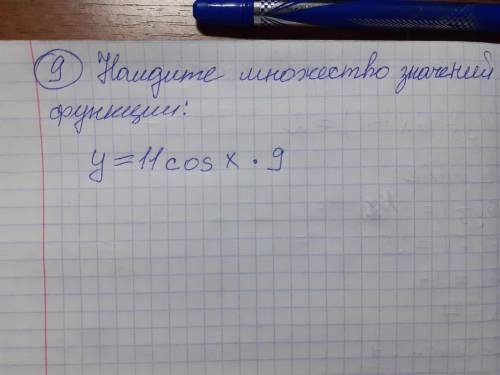 9 Найдите множество значений
функции:
y = 11 cos x · 9